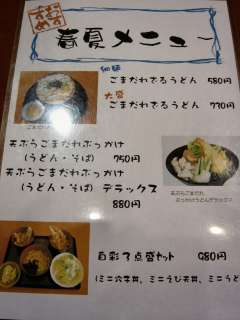 おすすめ
春夏メニュー
細麺
ごまだれざるうどん 580円
大盛
ごまだれざるうどん 770円
天ぷらごまだれぶっかけ
(うどん・そば) 750円
天ぷらごまだれぶっかけ
(うどん・そば) デラックス
880円
天ぷらごまだれ
ぶっかけうどんデラックス
自彩3点盛セット 980円
(ミニ穴子丼、ミニえび天丼、ミニうど